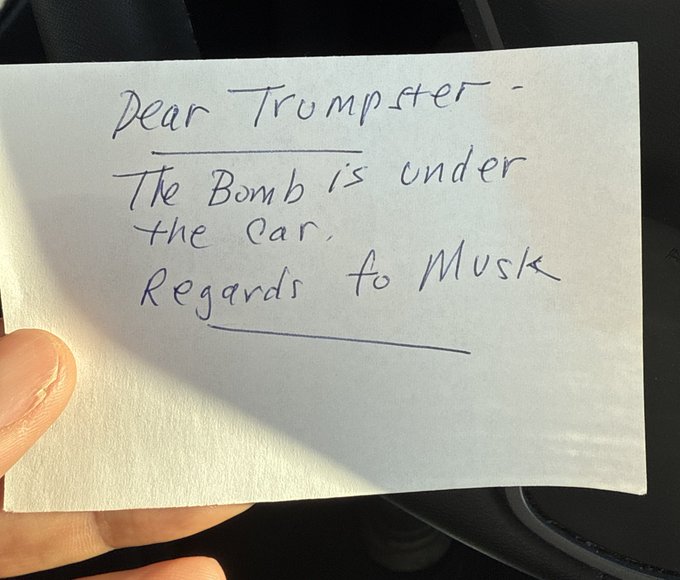 Dear Trumpster -
The Bomb is under
the car.
Regards to Musk